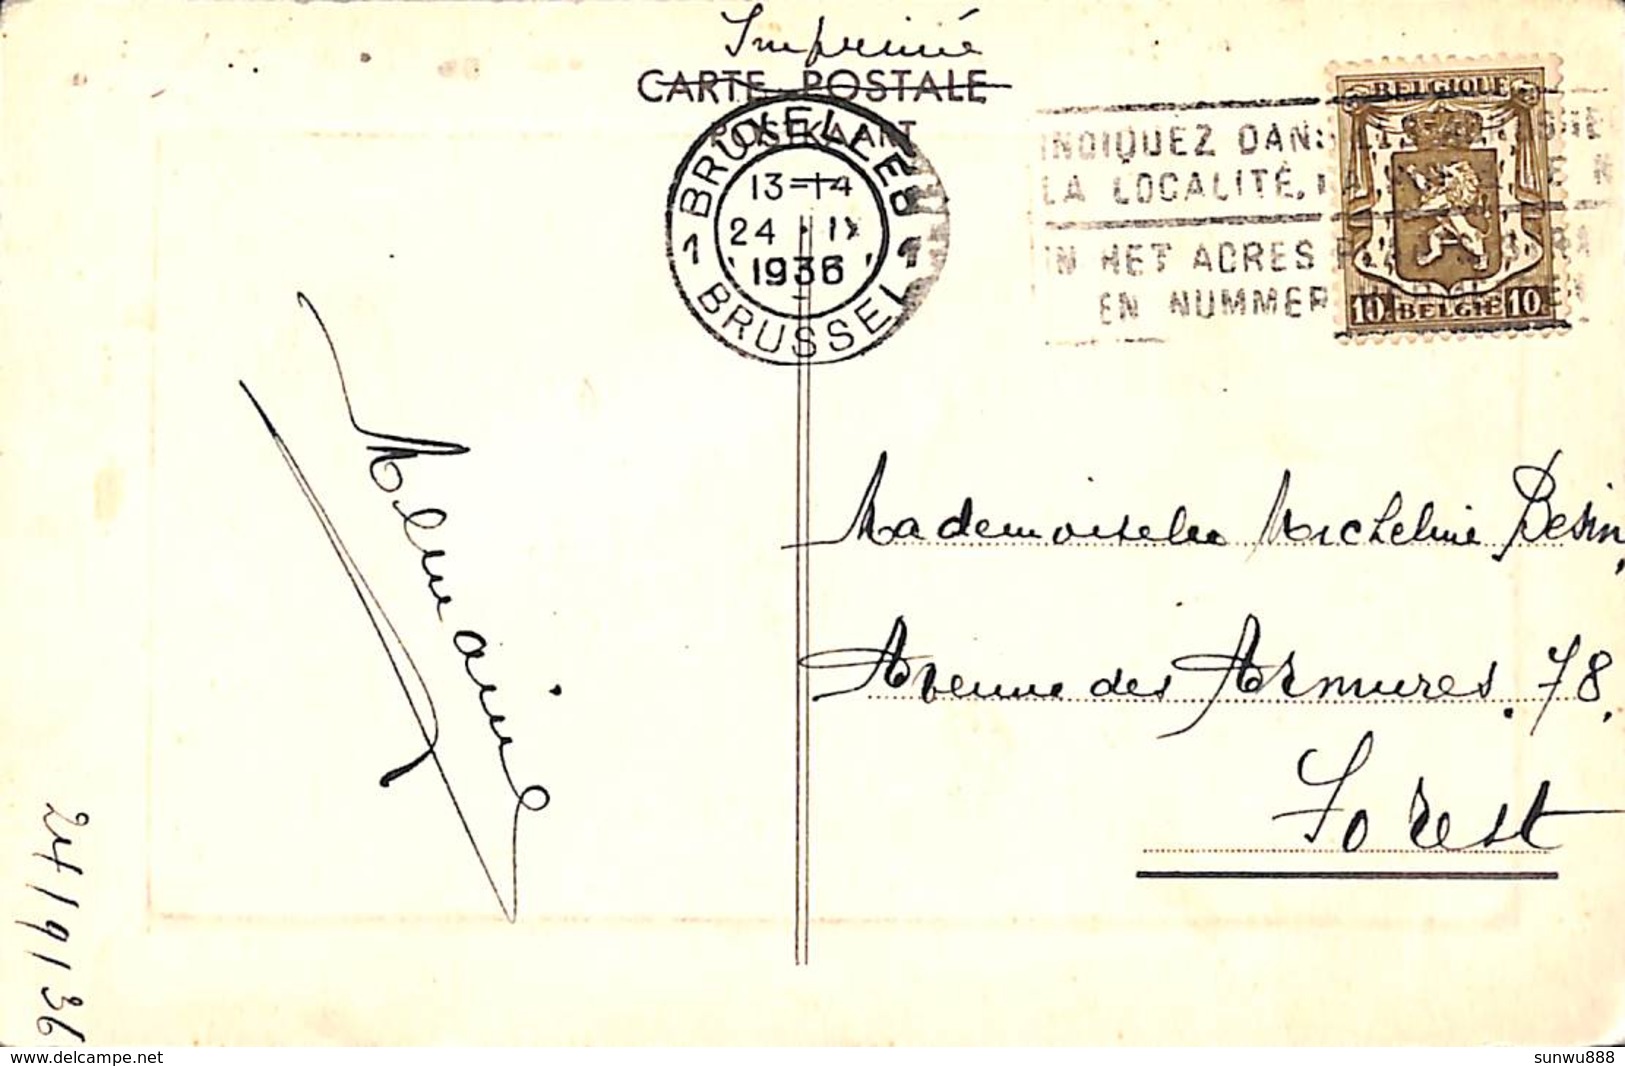 Imprimé
CARTE POSTALE
POSTKAART
1 BRUXELLES 1
13-14
24 · IX
1936
BRUSSEL
INDIQUEZ DANS
LA LOCALITÉ, LA
IN HET ADRES
EN NUMMER
BELGIQUE
10 BELGIE 10
Mademoiselle Micheline Besin,
Avenue des Armures. 78,
Forest
24/9/36
delcampe.net
sunwu888